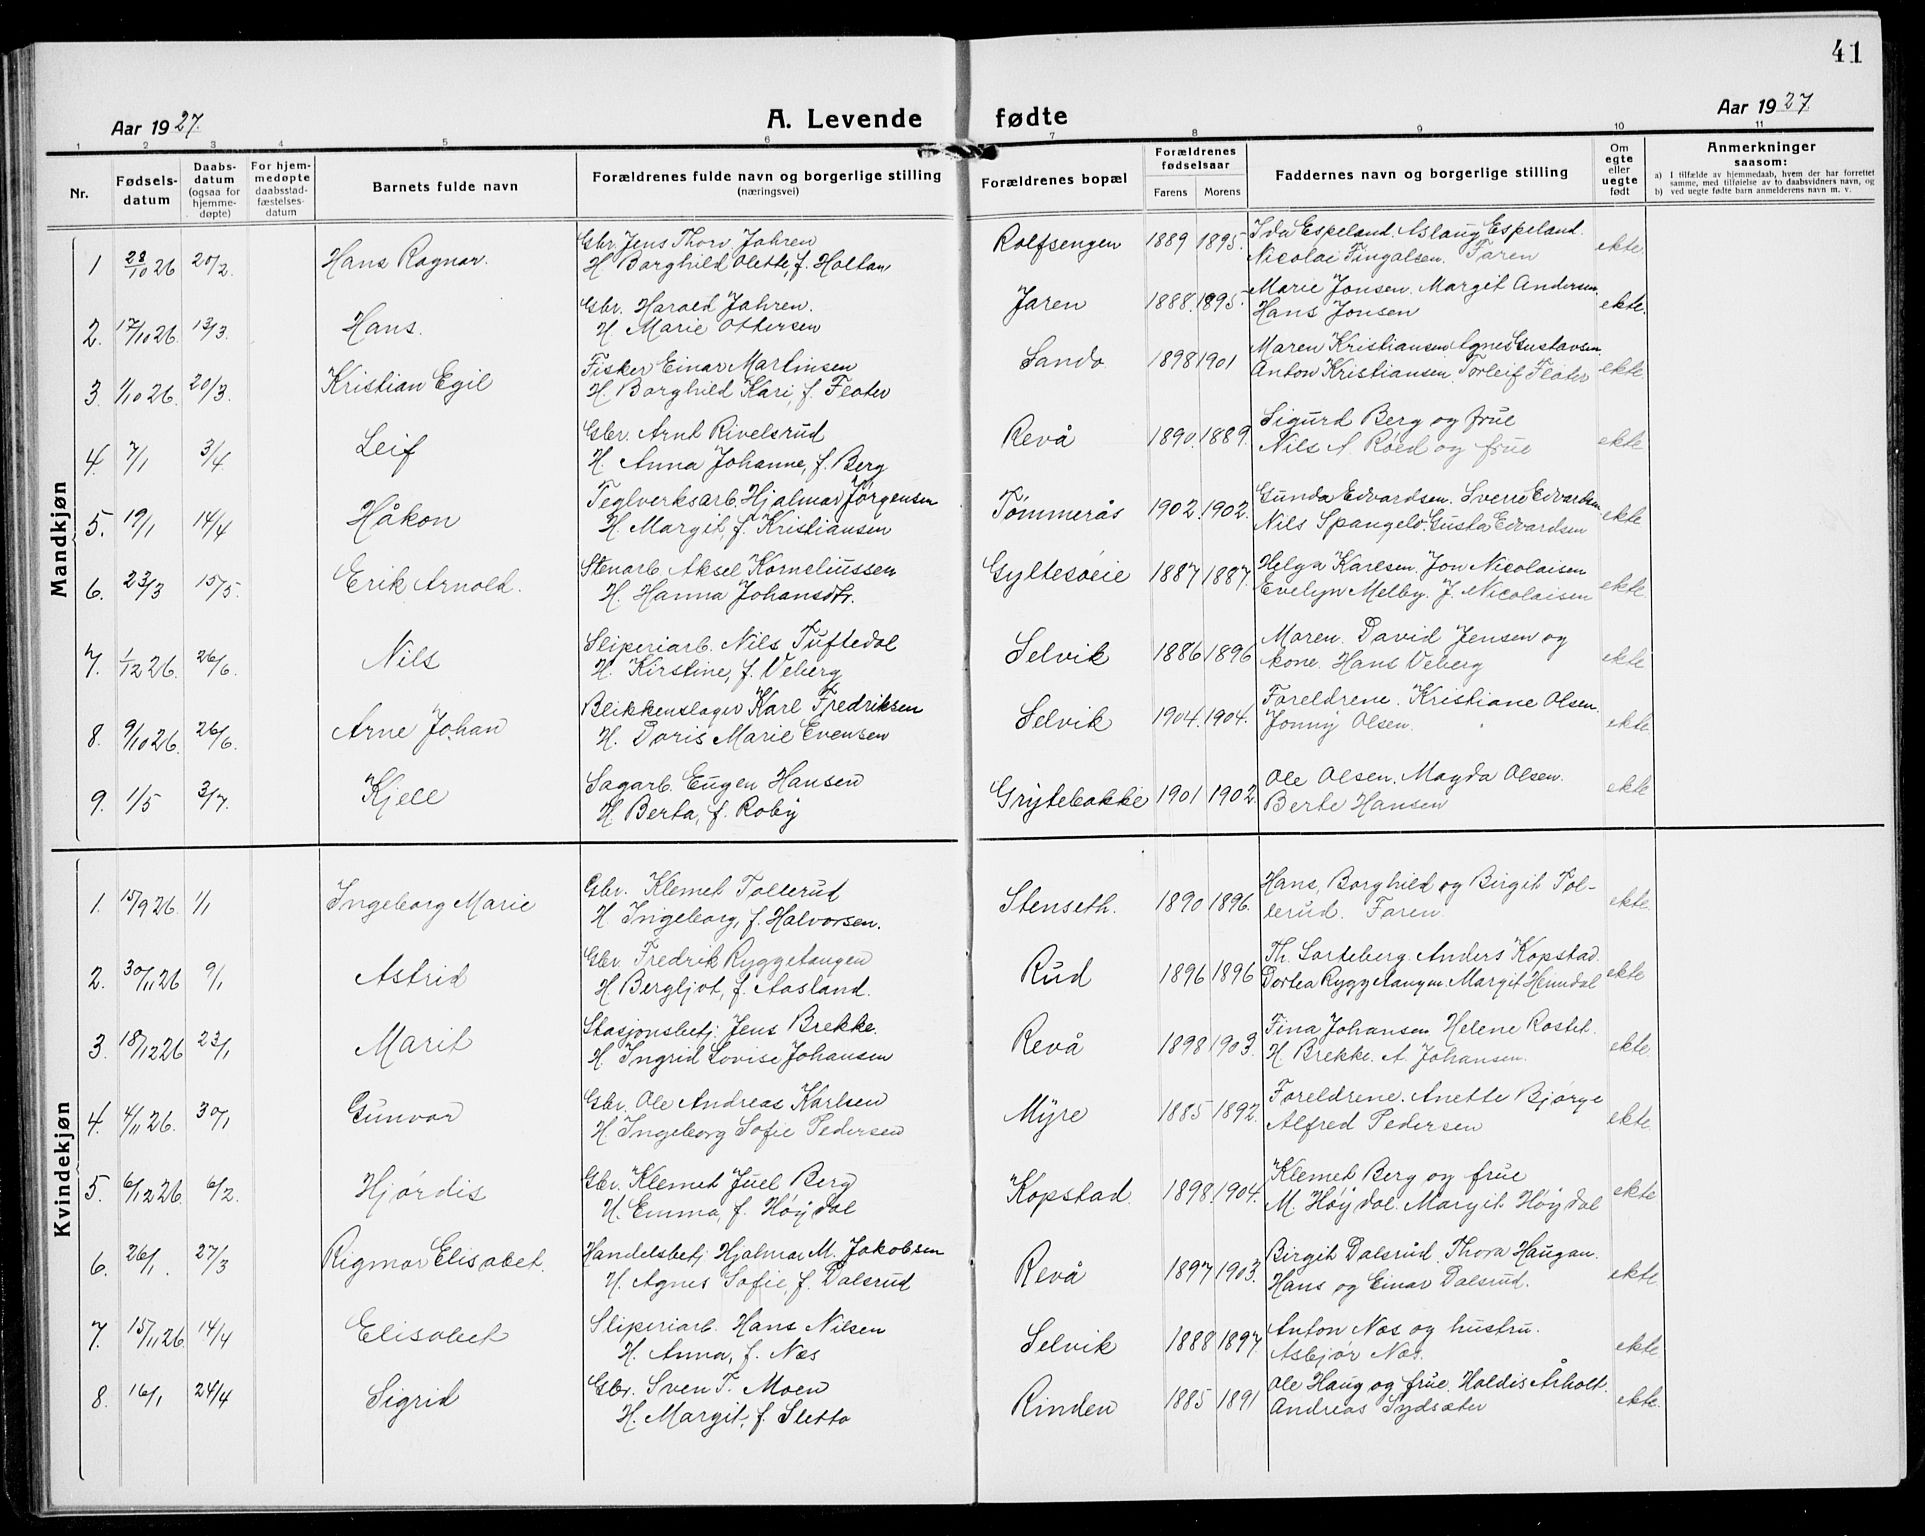 41
Aar 1927.
A. Levende fødte
Aar 1927.
1 2 3 4 5 6 7 8 9 10 11
Nr.
Fødsels-datum
Daabs-datum (ogsaa for hjemme-døpte)
For hjem-medøpte daabsstad-fæstelses-datum
Barnets fulde navn
Forældrenes fulde navn og borgerlige stilling (næringsvei)
Forældrenes bopæl
Forældrenes fødselsaar
Farens Morens
Faddernes navn og borgerlige stilling
Om egte eller uegte født
Anmerkninger
saasom:
a) I tilfælde av hjemmedaab, hvem der har forrettet samme, med tilføielse av to daabsvidners navn, og
b) ved uegte fødte barn anmelderens navn m. v.
Mandkjøn
1 28/10 26 20/2. Hans Ragnar. Gbr. Jens Thorv. Jahren Rolfsengen 1889 1895. Ida Espeland. Aslaug Espeland. ekte.
H. Borghild Olette, f. Holtan Nicolai Fingalsen. Faren
2. 17/10 26. 13/3 Hans. Gbr. Harald Jahren. Jaren 1888. 1895. Marie Jonsen. Margit Andersen ekte.
H. Marie Ottersen Hans Jonsen
3. 1/10 26. 20/3. Kristian Egil Fisker Einar Martinsen Sando 1898 1901 Maren Kristiansen. Agnes Gustavsen. ekte.
H. Borghild Kari, f. Flater Anton Kristiansen. Torleif Flater
4. 7/1 3/4. Leif Gbr. Arnt Rivelsrud Revå 1890. 1889. Sigurd Berg og frue ekte
H. Anna Johanne, f. Berg Nils A. Røed og frue
5. 19/1 14/4 Håkon Teglverksarb. Hjalmar Jørgensen Tømmerås 1902. 1902. Gunda Edvardsen. Sverre Edvardsen ekte
H. Margit, f. Kristiansen Nils Spangelo. Gusta Edvardsen
6. 23/3 15/5. Erik Arnold. Stenarb. Aksel Korneliussen Gyltesøeie 1887 1887. Helga Karlsen. Jon Nicolaisen ekte.
H. Hanna Johansdtr. Evelyn Melby. J. Nicolaisen
7. 1/12 26. 26/6. Nils Sliperiarb. Nils Tuftedal Selvik 1886 1896 Moren. David Jensen og ekte
H. Kirstine, f. Veberg kone. Hans Veberg
8. 9/10 26. 26/6. Arne Johan Blikkenslager Karl Fredriksen Selvik 1904. 1904. Foreldrene. Kristiane Olsen. ekte.
H. Doris Marie Evensen Jonny Olsen.
9. 1/5 3/7. Kjell Sagarb. Eugen Hansen Grytebakke 1901 1902. Ole Olsen. Magda Olsen. ekte
H. Berta, f. Roby Berte Hansen
Kvindekjøn
1. 15/9 26. 1/1 Ingeborg Marie Gbr. Klemet Tollerud Stenseth. 1890 1896. Hans, Borghild og Birgit Tol- ekte.
H. Ingeborg, f. Halvorsen. lerud. Faren.
2. 30/11 26 9/1 Astrid Gbr. Fredrik Ryggetangen Rud 1896 1896 Th. Sorteberg. Anders Kopstad. ekte
H. Bergljot, f. Aasland. Dortea Ryggetangen. Margit Heimdal
3. 18/12 26 23/1 Marit Stasjonsbetj. Jens Brekke. Revå 1898 1903. Fina Johansen. Helene Rostet. ekte.
H. Ingrid Lovise Johansen H. Brekke. A. Johansen.
4. 4/11 26. 30/1 Gunvor Gbr. Ole Andreas Karlsen Myre 1885 1892. Foreldrene. Anette Bjørge ekte.
H. Ingeborg Sofie Pedersen Alfred Pedersen
5. 6/12 26. 6/2. Hjørdis Gbr. Klemet Juel Berg Kopstad. 1898. 1904. Klemet Berg og frue ekte
H. Emma, f. Høydal M. Høydal. Margit Høydal
6. 26/1. 27/3 Rigmor Elisabet. Handelsbetj. Hjalmar M. Jakobsen Revå 1897 1903. Birgit Dalsrud. Thora Haugan. ekte
H. Agnes Sofie, f. Dalsrud Hans og Einar Dalsrud.
7. 15/11 26. 14/4 Elisabet Sliperiarb. Hans Nilsen Selvik 1888 1897. Anton Næs og hustru. ekte
H. Anna, f. Næs Asbjør Næs.
8. 16/1 24/4 Sigrid Gbr. Sven T. Moen Rinden 1885 1891 Ole Haug og frue. Haldis Årholt. ekte.
H. Margit, f. Sletto Andreas Sydsæter